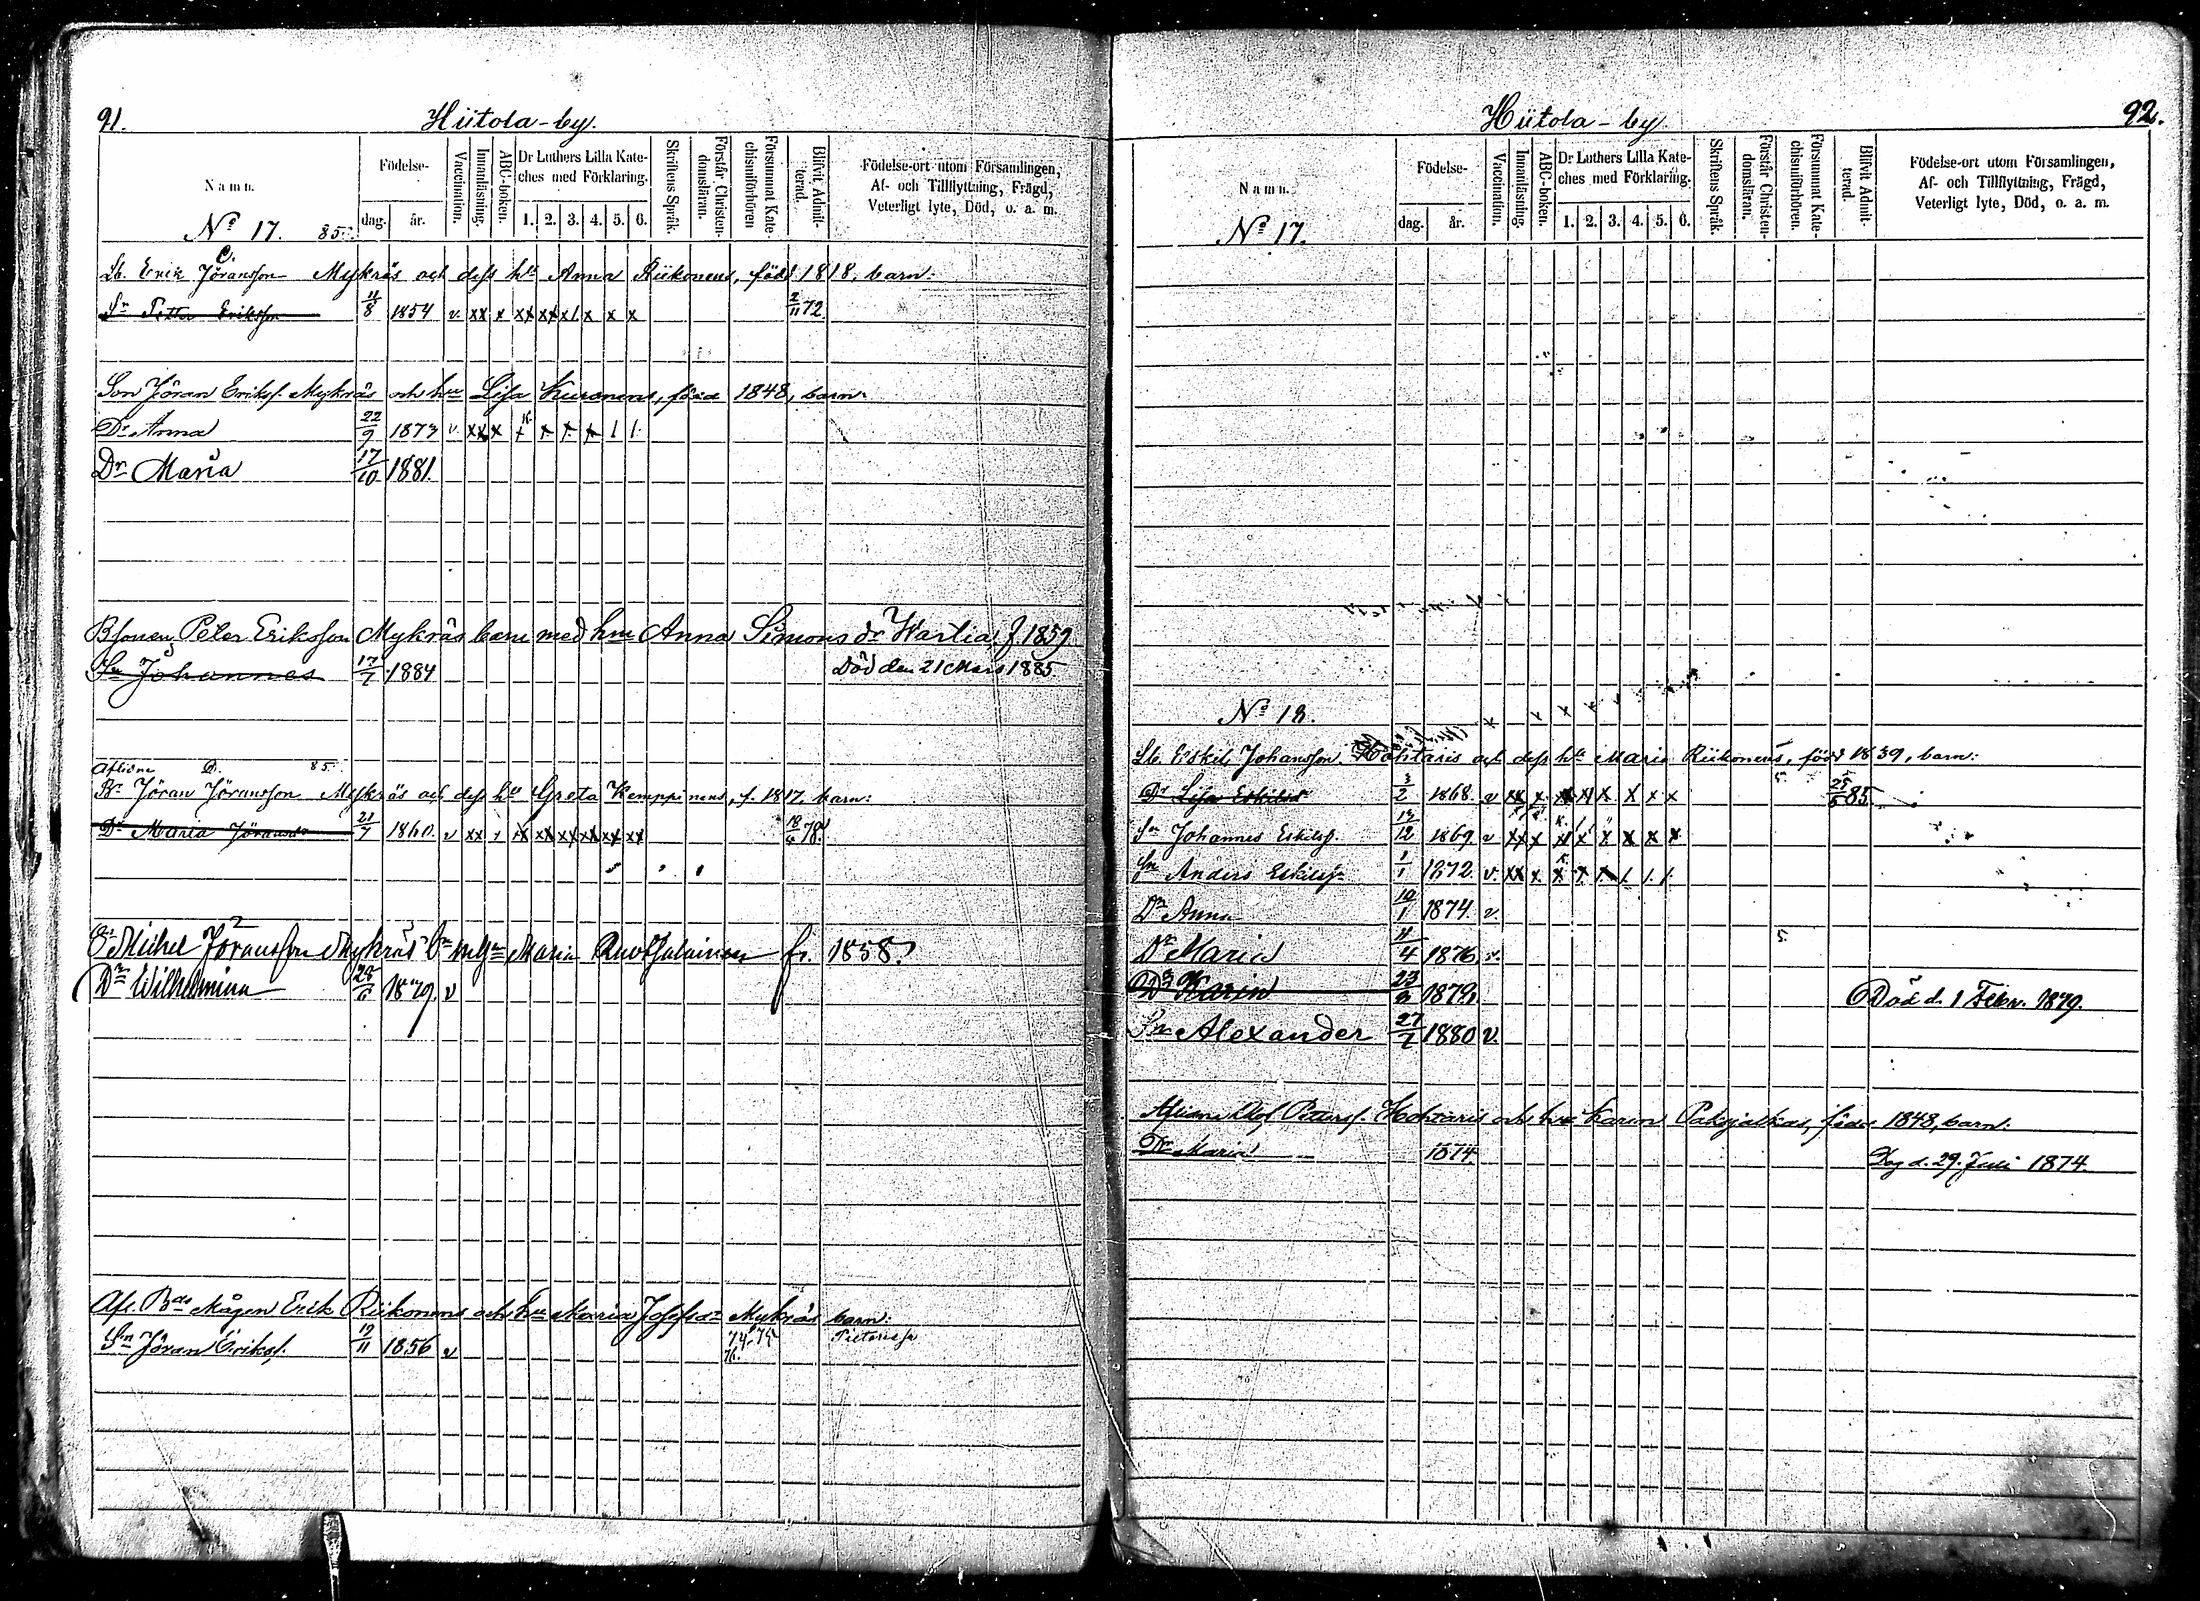 91.
Hiitola-by.
Namn.
Födelse-
dag.
år.
Vaccination.
Innanläsning.
ABC-boken.
Dr Luthers Lilla Kate-
ches med Förklaring.
1. 2. 3. 4. 5. 6.
Skriftens Språk.
Förstår Christen-
domsläran.
Försummat Kate-
chismiförhören
Blifvit Admit-
terad.
Födelse-ort utom Församlingen,
Af- och Tillflyttning, Frägd,
Veterligt lyte, Död, o. a. m.
No 17. 85.
C.
Lb. Erik Jöransson Mykräs och dess hu Anna Riikonens, född 1818, barn.
Sn Petter Eriksson 11/8 1854 v. xx x xx xx x/. x x x 2/11 72.
Son Jöran Eriksf. Mykräs och hu Lisa Kuronens, född 1848, barn.
Dr Anna 22/9 1873 v. xx x x x x x / /.
Dr Maria 17/10 1881.
Bsonen Peter Eriksson Mykräs barn med hu Anna Simons dr Wartia f. 1859.
Sn Johannes 17/7 1884 Död den 21 Mars 1885
Aflidne D. 85.
Br Jöran Jöransson Mykräs och dess hu Greta Kemppinens, f. 1817, barn:
Dr Maria Jöransdr 21/7 1860. v xx x xx xx xx xx xx xx 18/6 78.
2
Michel Jöransson Mykräs Maria 1858.
Dr Wilhelmina 28/6 1879. v
Afl. Bds Mågen Erik Riikonens och hu Maria Josefsdr Mykräs barn:
Sn Jöran Eriksf. 19/11 1856 v 74-75
76.
92.
Hiitola-by.
Namn.
Födelse-
dag.
år.
Vaccination.
Innanläsning.
ABC-boken.
Dr Luthers Lilla Kate-
ches med Förklaring.
1. 2. 3. 4. 5. 6.
Skriftens Språk.
Förstår Christen-
domsläran.
Försummat Kate-
chismiförhören.
Blifvit Admit-
terad.
Födelse-ort utom Församlingen,
Af- och Tillflyttning, Frägd,
Veterligt lyte, Död, o. a. m.
No 17.
No 18.
Lb. Eskil Johansson Hohtaris och dess hu Maria Riikonens, född 1839, barn:
Dr Lisa Eskilsdr 3/2 1868. v xx x. x x x x x x 5. 85.
Sn Johannes Eskilsf. 13/12 1869. v xx x x x x x x x
Sn Anders Eskilsf. 1/1 1872. v. xx x. x
Dr Anna 10/1 1874. v.
Dr Maria 11/4 1876. v. 5.
Dr Karin 1879. Död d. 1 Febr. 1879.
Sn Alexander 27/7 1880 v.
Aflidne Olof Petersf. Hohtaris och hu Karin Paksjalkas, född 1848, barn:
Dr Maria 1874. Dog d. 29. Juli 1874